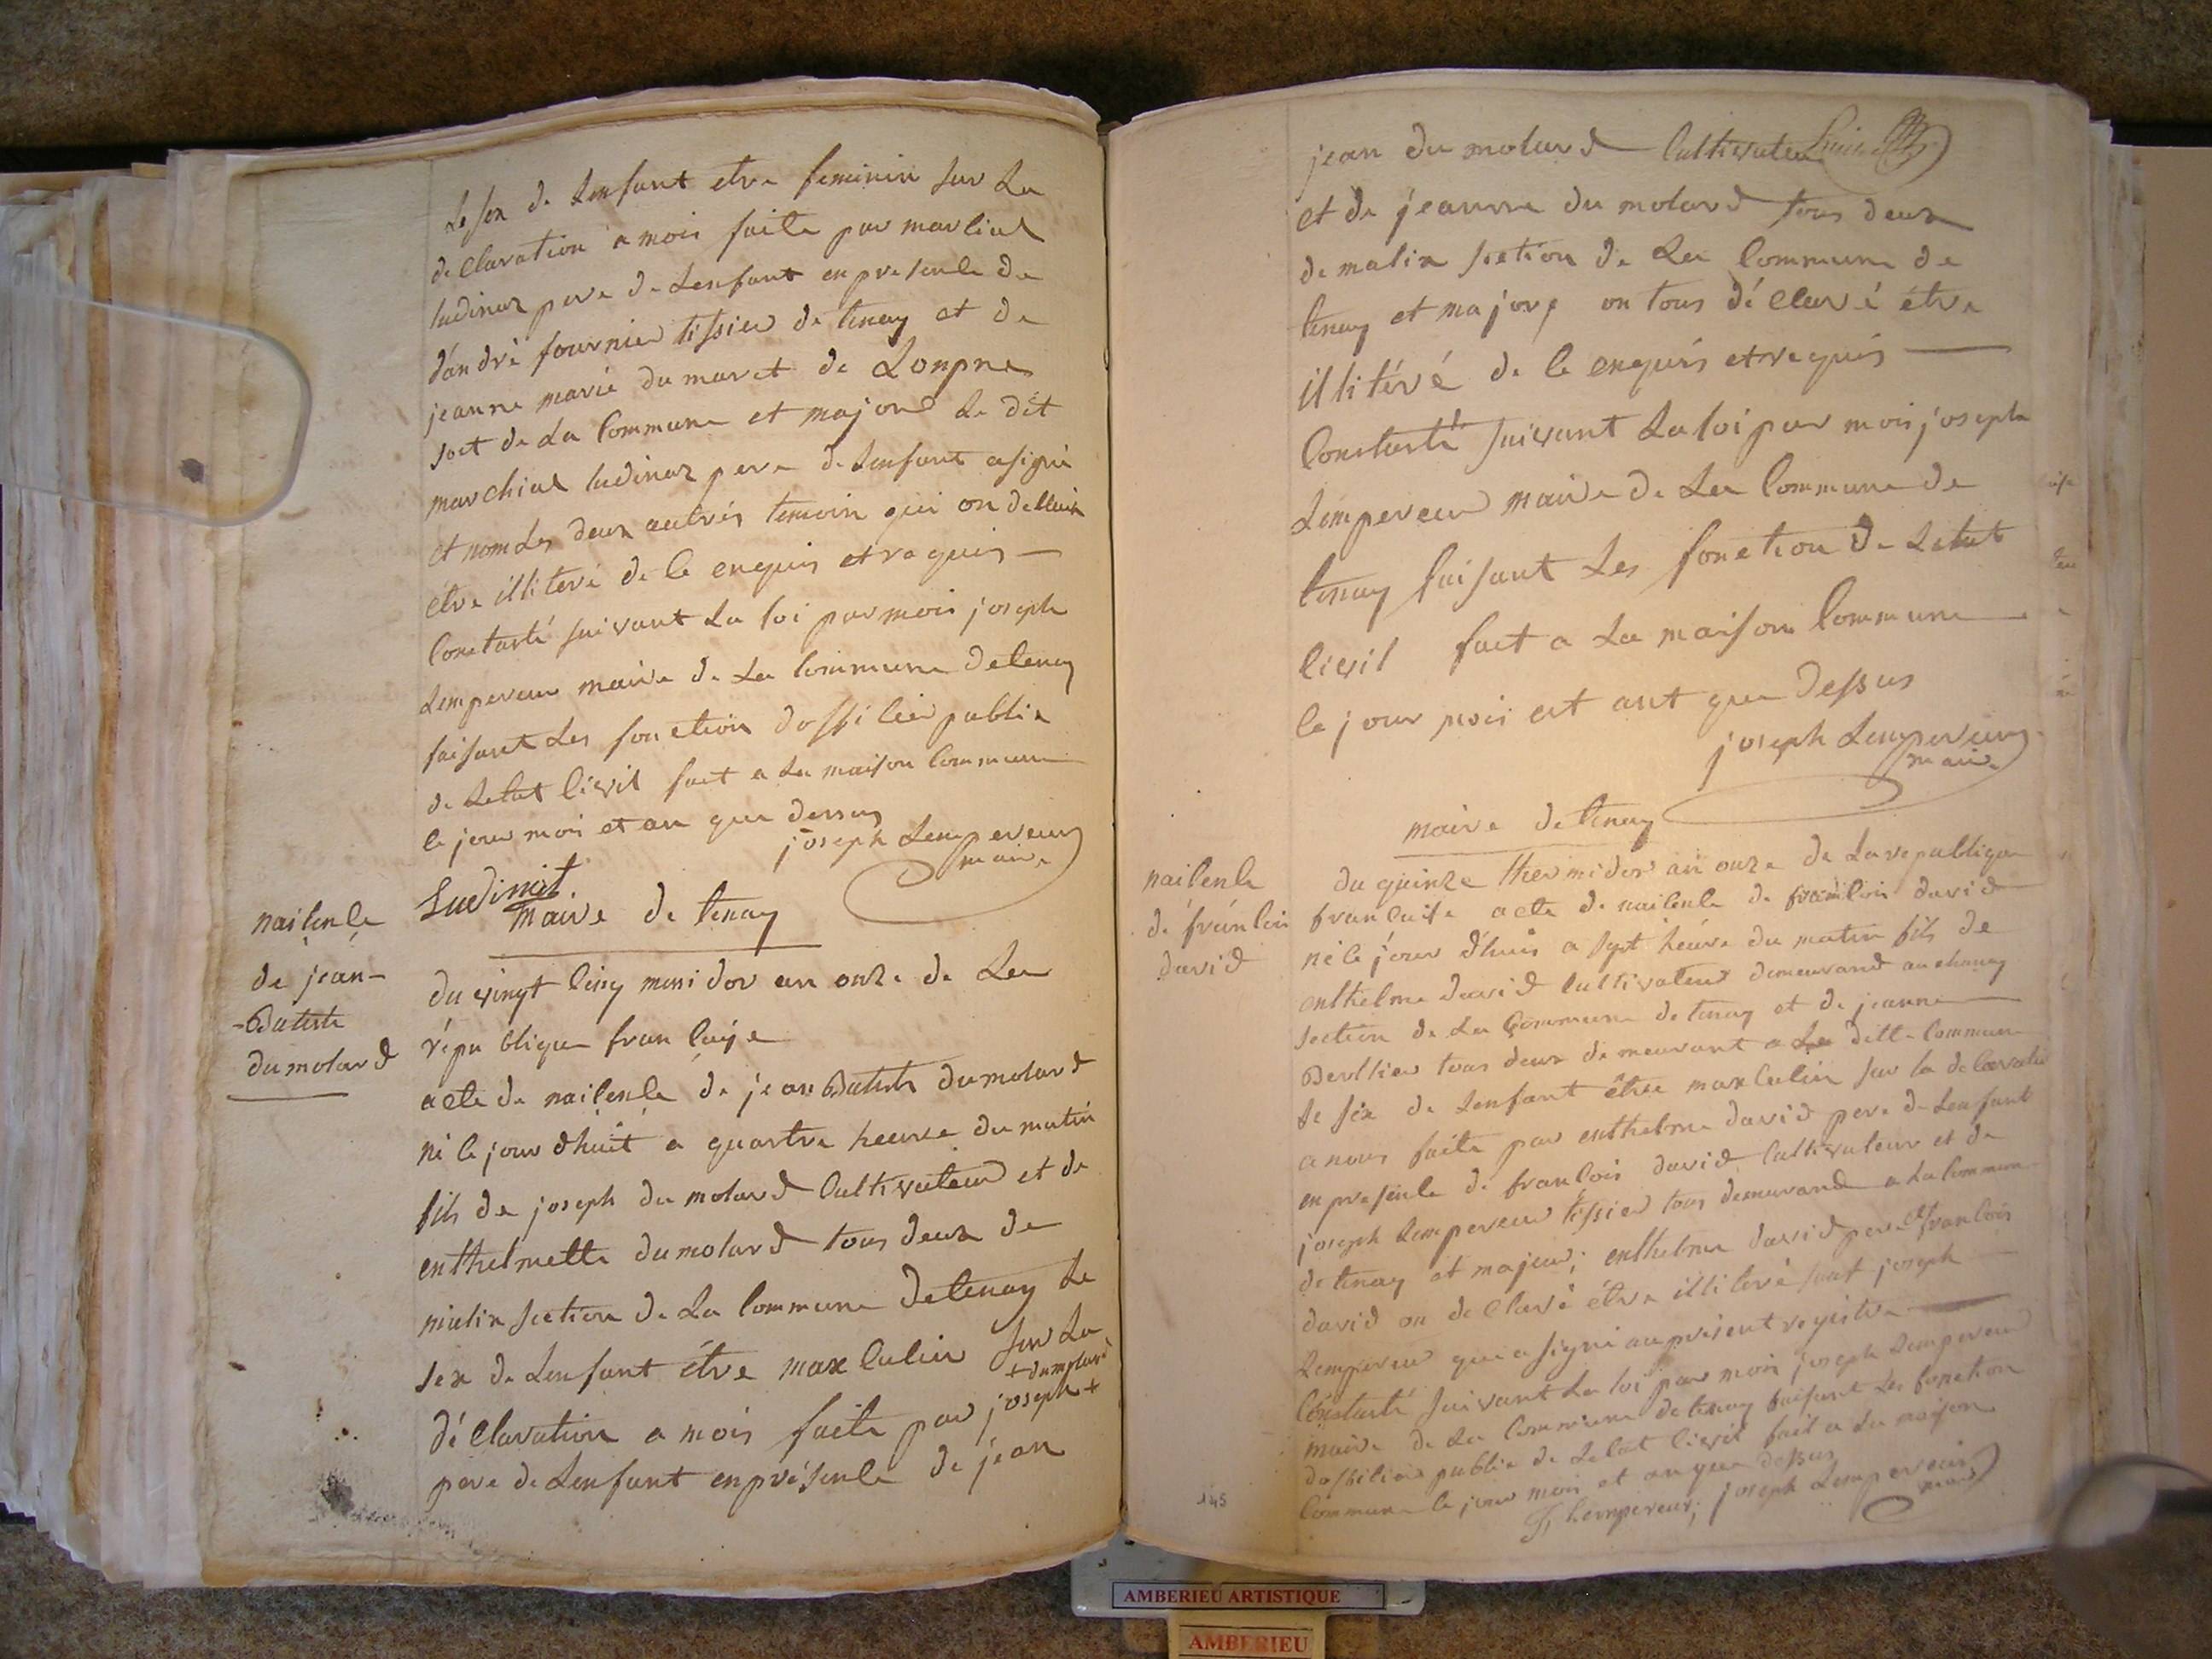 Le sex de Lenfant etre feminin sur La
declaration a mois faite par marlial
ludinaz pere de Lenfant en presenle de
d'andré fournier tissier de tenay et de
jeanne marie dumaret de Longnes
sect de La Commune et major Le dit
marchial ludinaz pere de Lenfant a signé
et nom Les deux autrés temoin qui on dellaire
étre illiteré de le enquis et requis —
Constaté suivant La loi par mois joseph
Lempereur maire de La Commune de tenay
faisant Les fonction dossilier publix
de Letat livil fact a La maison Commune
le jour mois et an que dessus
joseph Lempereur
maire
Ludinat.
maire de tenay
nailenle
de jean-
-Batiste
dumolard
du vingt linq messidor an onze de La
répu blique franlaise
acte de nailenle de jean Batiste dumolard
né le jour dhuit a quartre heure du matin
fils de joseph du molard Cultivateur et de
enthelmette dumolard tous deux de
malix section de La Commune de tenay Le
sex de Lenfant étre maxlulin sur La
+ dumolard
déclaration a mois faite par joseph +
pere de Lenfant en présenle de jean
jean du molard Cultivateur
et de jeanne du molard tous deux
de malix section de La Commune de
tenay et major on tous déclaré étre
illitéré de le enquis et requis —
Constaté suivant La loi par mois joseph
Lempereur maire de La Commune de
tenay faisant Les fonction de Letat
livil fact a La maison Commune
le jour mois est ant que dessus
joseph Lempereur
maire
maire de tenay
nailenle
de franlois
david
du quinze thermidor an onze de La republique
franlaise acte de nailenle de franlois david
né le jour d'huis a sept heure du matin fils de
enthelme david Cultivateur demeurand au chanay
section de La Commune de tenay et de jeanne
Berllier tous deux demeurant a La ditte Commune
Le sex de Lenfant être maxlulin sur la delaratio
a nous faite par enthelme david pere de Lenfant
en presenle de franlois david Cultivateur et de
joseph Lempereur tissier tous demeurand a La Commune
de tenay et majeur; enthelme david pere et franlois
david on declaré étre illiteré sauf joseph
Lempereur qui a signé au présent registre
Constaté suivant La loi par mois joseph Lempereur
maire de La Commune de tenay faisant Les fonction
dossilier publix de Letat livil fait a La maison
Commune le jour mois et an que dessus
J, Lempereur; joseph Lempereur
maire
145
AMBERIEU ARTISTIQUE
AMBERIEU